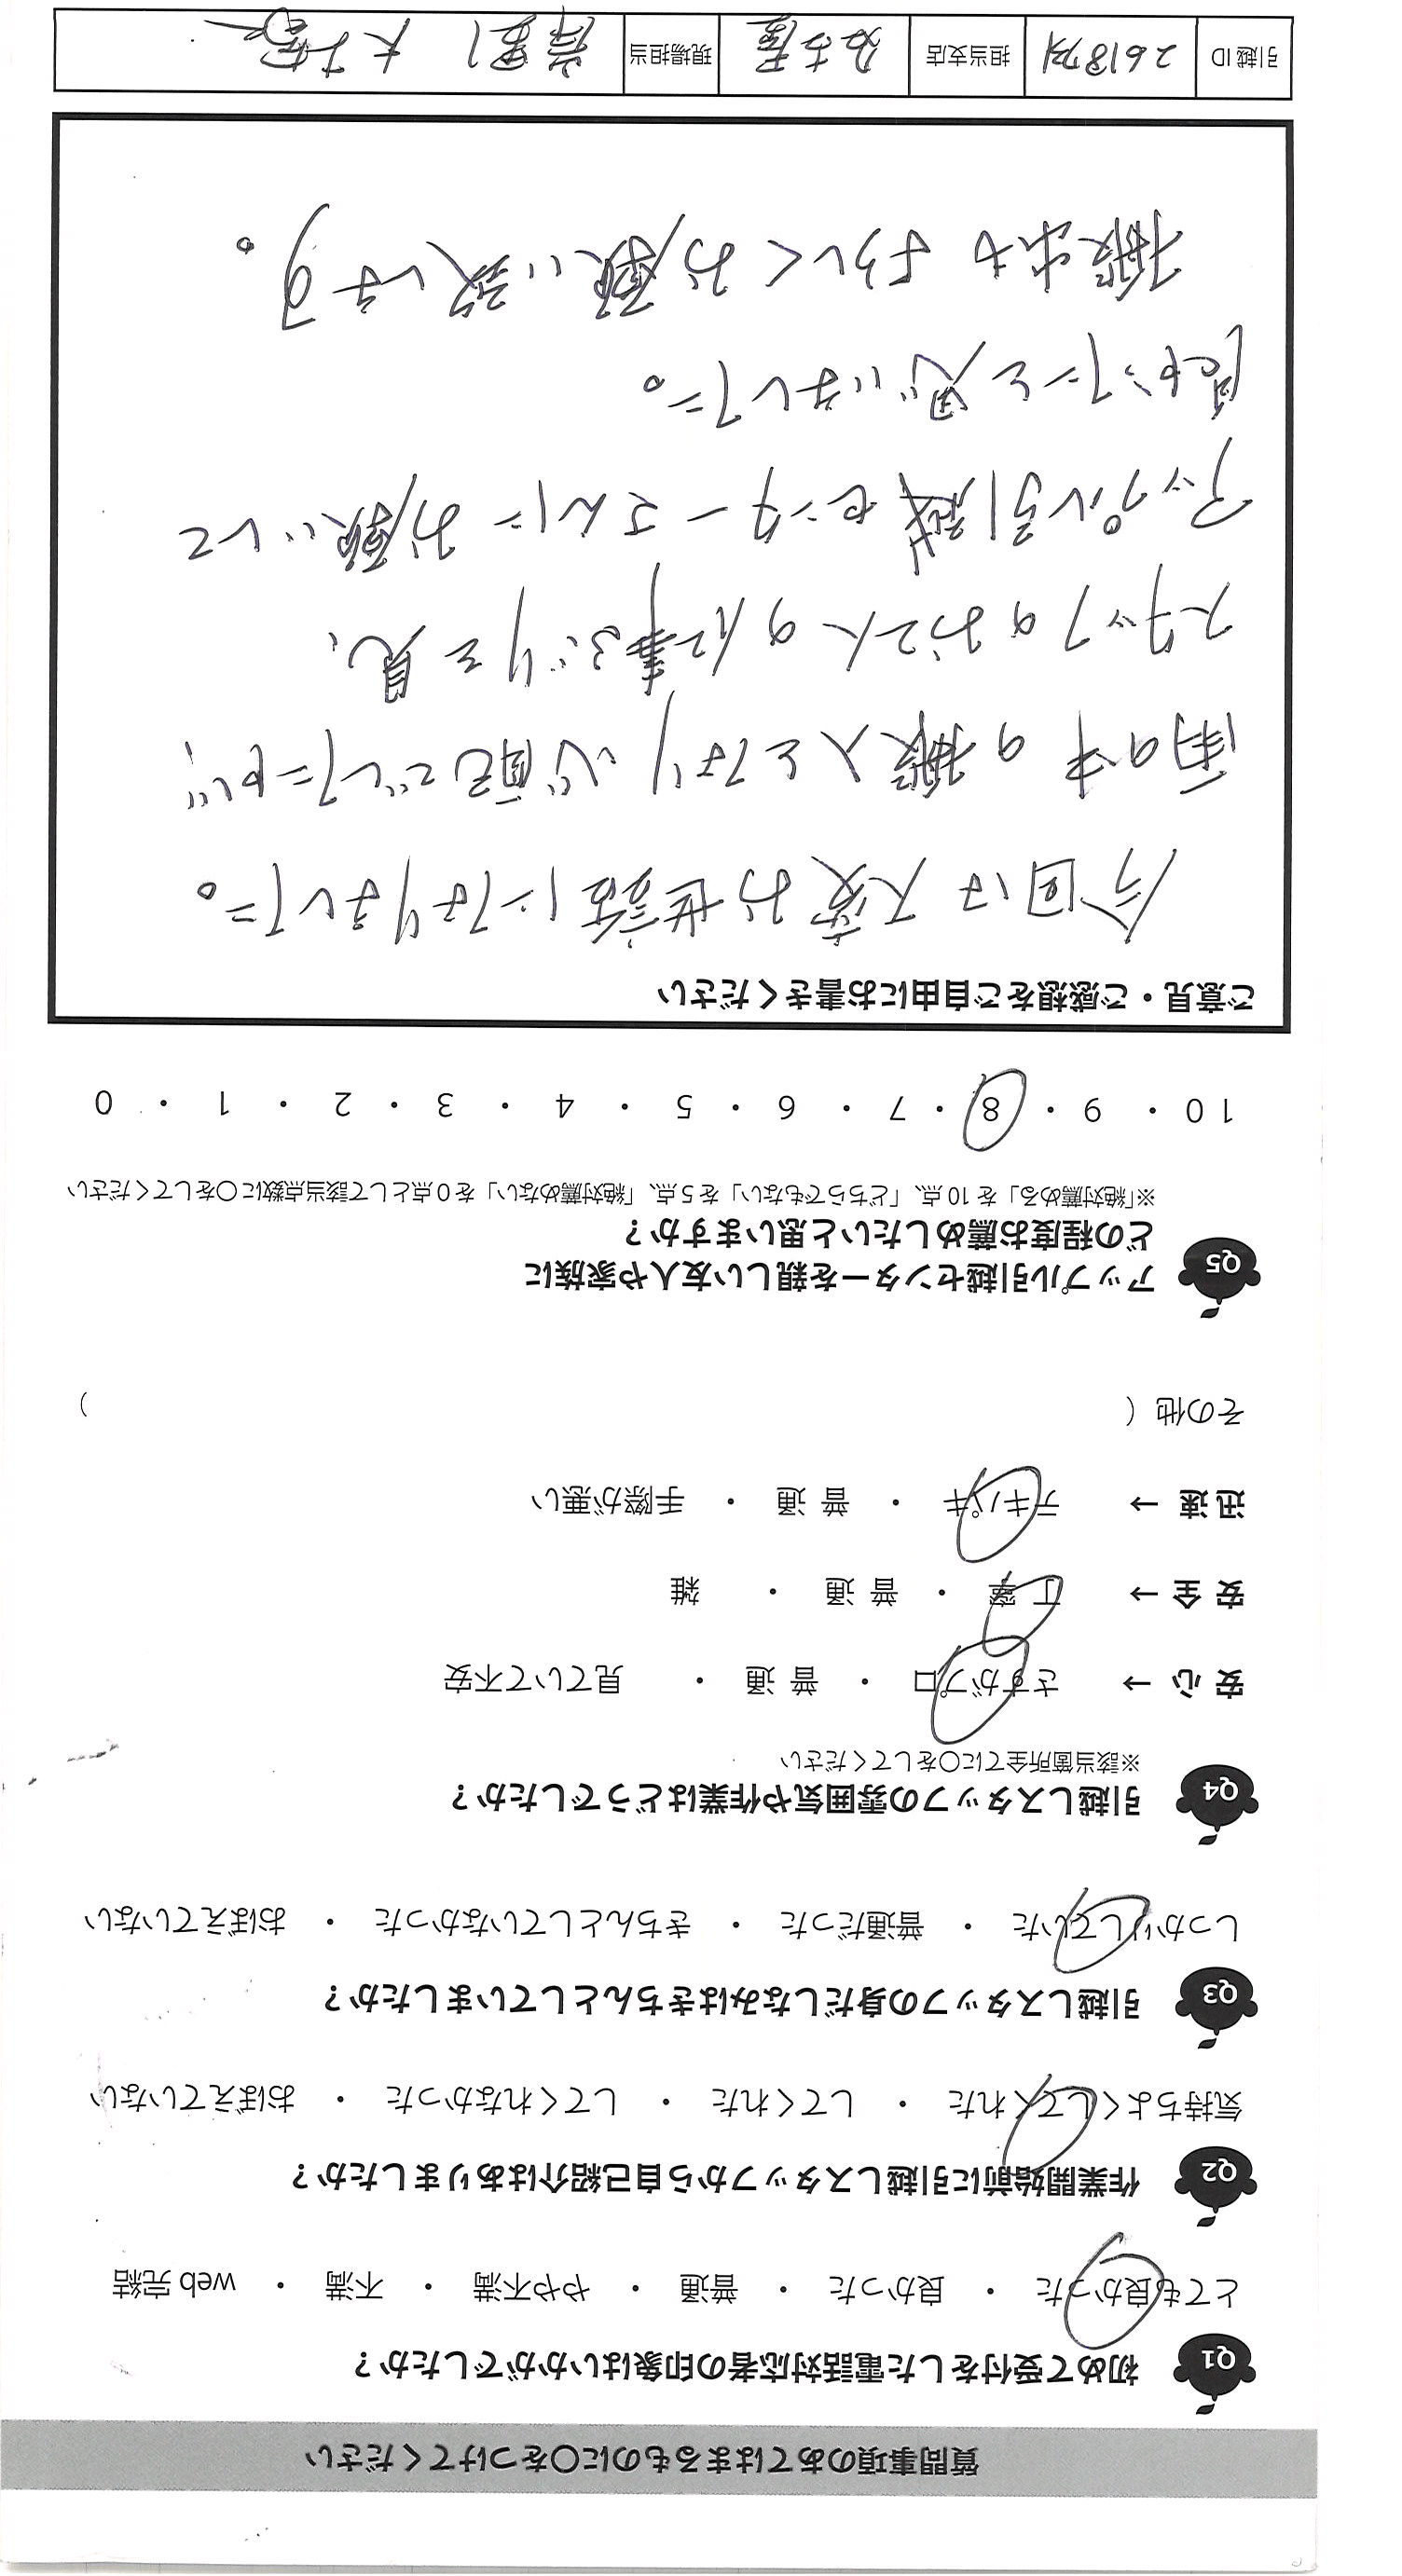 質問事項のあてはまるものに〇をつけてください
Q1 初めて受付をした電話対応者の印象はいかがでしたか？
とても良かった ・ 良かった ・ 普通 ・ やや不満 ・ 不満 ・ web 完結
Q2 作業開始前に引越しスタッフから自己紹介はありましたか？
気持ちよくしてくれた ・ してくれた ・ してくれなかった ・ おぼえていない
Q3 引越しスタッフの身だしなみはきちんとしていましたか？
しっかりしていた ・ 普通だった ・ きちんとしていなかった ・ おぼえていない
Q4 引越しスタッフの雰囲気や作業はどうでしたか？
※該当箇所全てに〇をしてください
安心 → さすがプロ ・ 普通 ・ 見ていて不安
安全 → 丁寧 ・ 普通 ・ 雑
迅速 → テキパキ ・ 普通 ・ 手際が悪い
その他（ ）
Q5 アップル引越センターを親しい友人や家族に
どの程度お薦めしたいと思いますか？
※「絶対薦める」を 10 点、「どちらでもない」を 5 点、「絶対薦めない」を 0 点として該当点数に〇をしてください
10 ・ 9 ・ 8 ・ 7 ・ 6 ・ 5 ・ 4 ・ 3 ・ 2 ・ 1 ・ 0
ご意見・ご感想をご自由にお書きください
今回は大変お世話になりました。
雨の中の搬入となり心配でしたが、
スタッフのお2人の仕事ぶりを見、
アップル引越センターさんにお願いして
良かったと思いました。
搬出もよろしくお願い致します。
引越 ID 担当支店 名古屋 現場担当 大塚